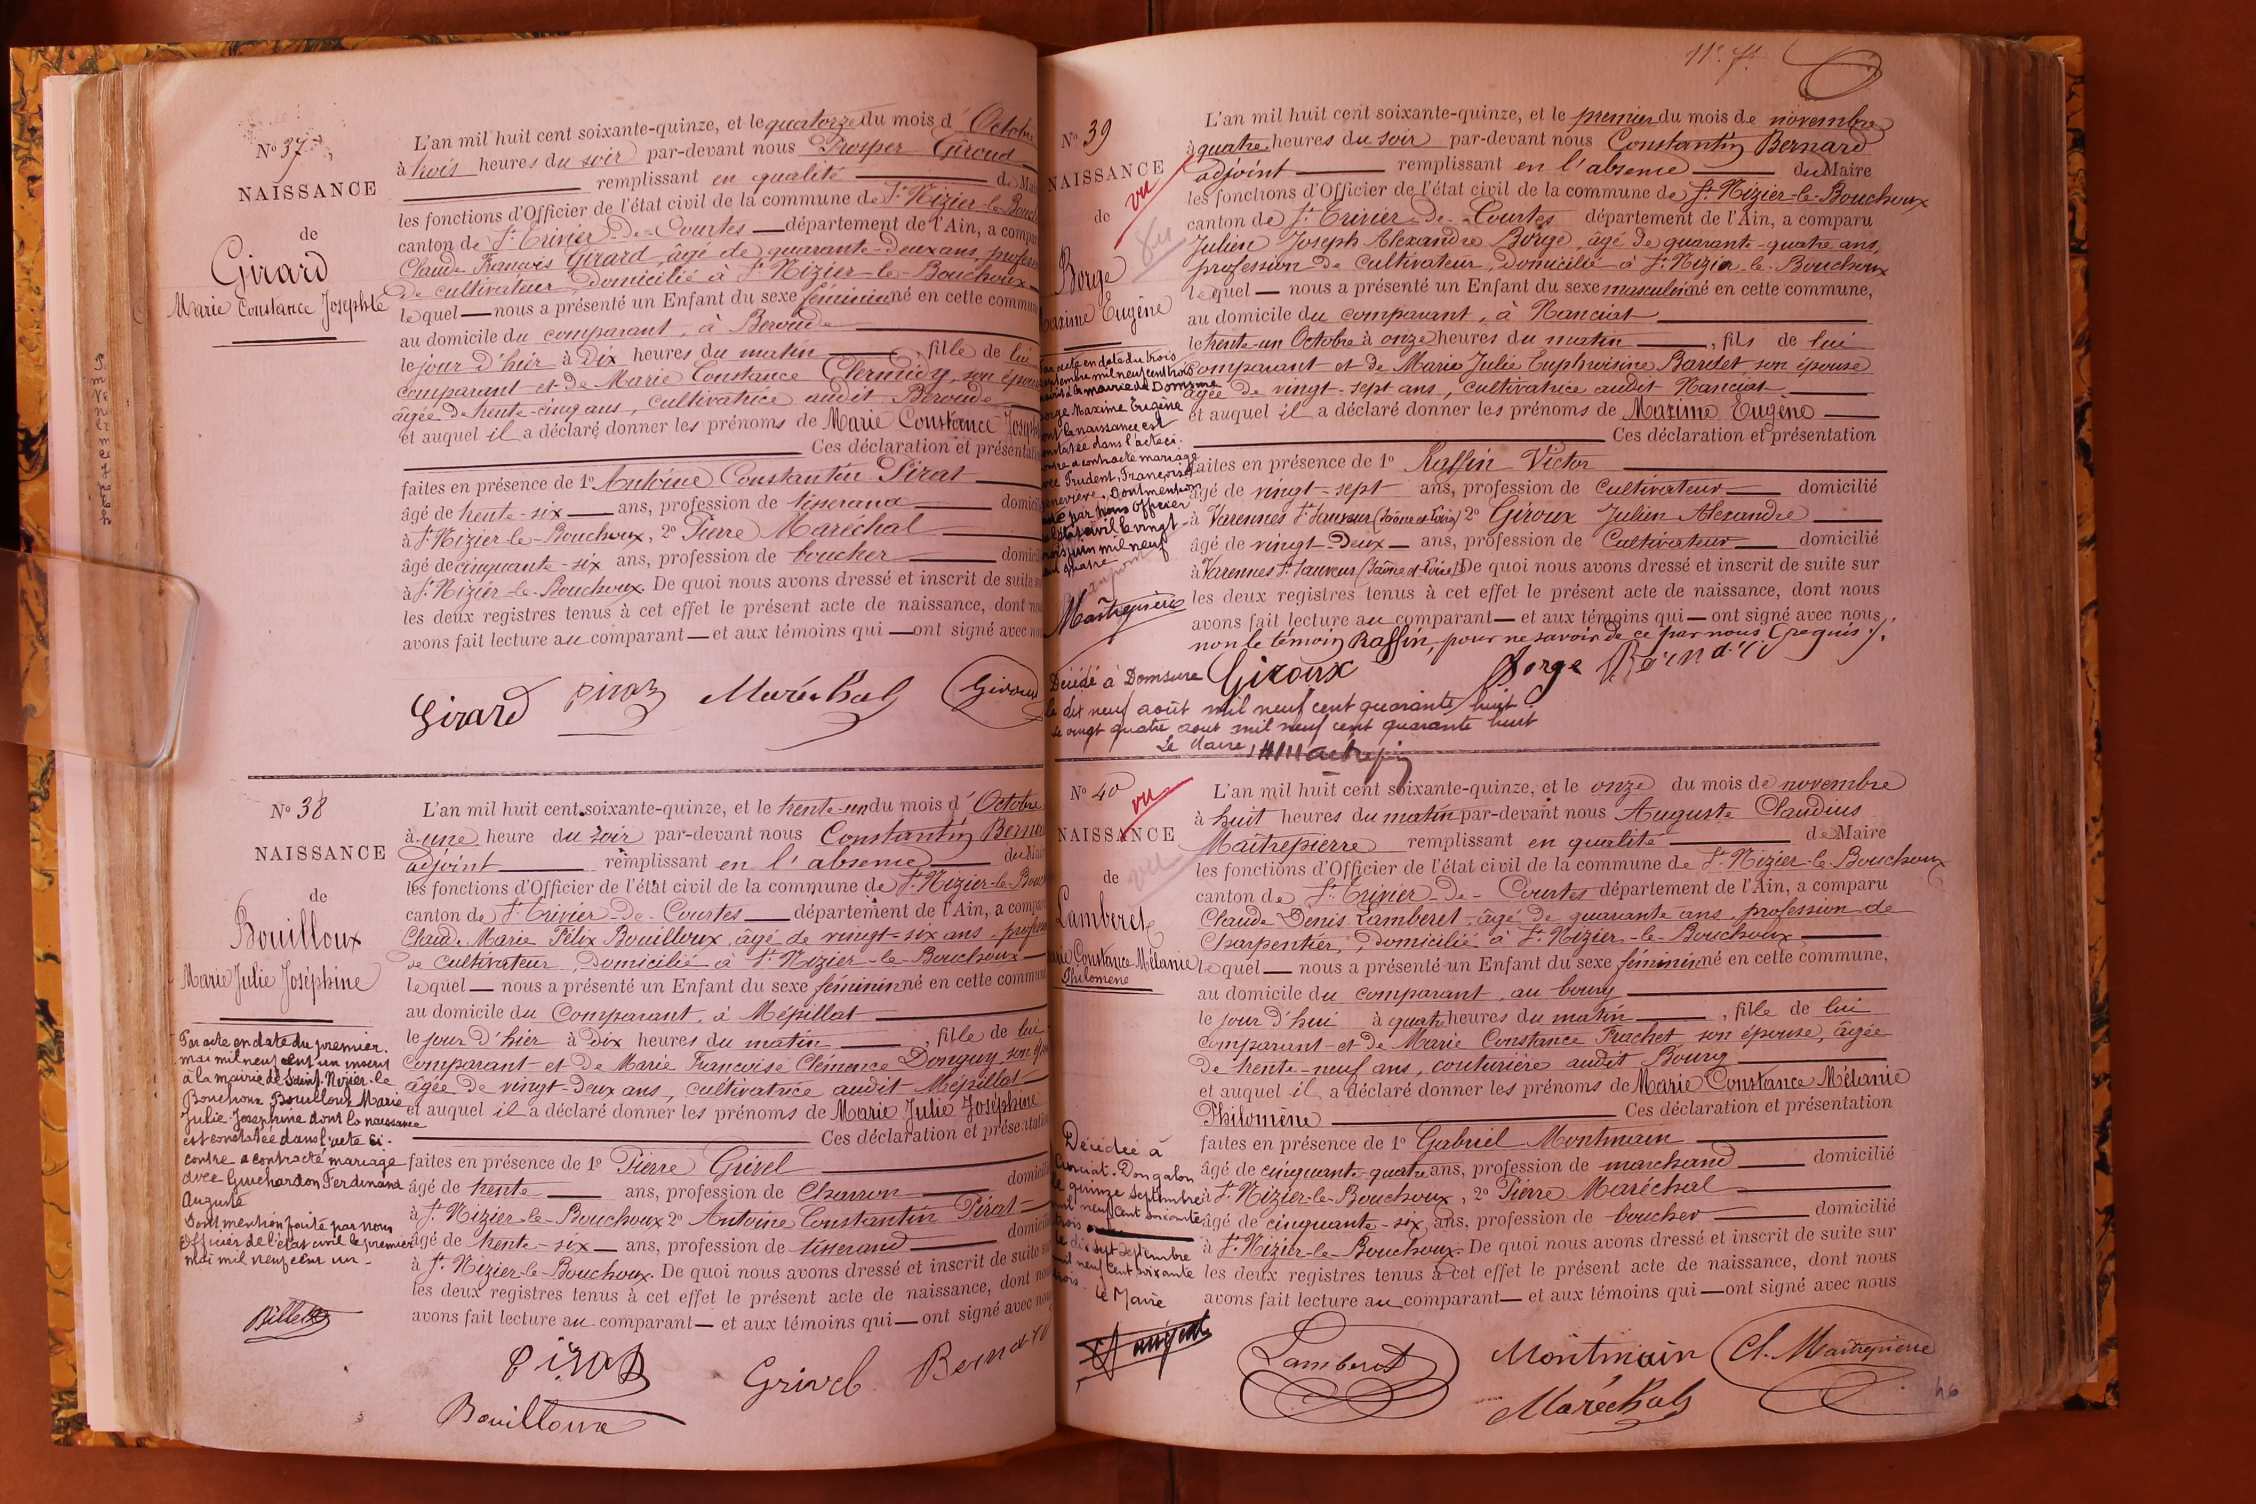 N° 37
NAISSANCE
de
Girard
Marie Constance Josephte
L'an mil huit cent soixante-quinze, et le quatorze du mois d'Octobre
à trois heures du soir par-devant nous Prosper Giroud
remplissant en qualité de Mai
les fonctions d'Officier de l'état civil de la commune de St Nizier-le-Bouch
canton de St Trivier-de-Courtes département de l'Ain, a compar
Claude François Girard, âgé de quarante-deux ans, profess
de cultivateur, domicilié à St Nizier-le-Bouchoux
lequel nous a présenté un Enfant du sexe féminin né en cette commun
au domicile du comparant, à Beroude
le jour d'hier à dix heures du matin, fille de lui
comparant et de Marie Constance son épouse
âgée de trente-cinq ans, cultivatrice audit Beroude
et auquel il a déclaré donner les prénoms de Marie Constance Joseph
Ces déclaration et présentatio
faites en présence de 1° Antoine Constantin Pirat
âgé de trente-six ans, profession de tisserand domicil
à St Nizier-le-Bouchoux, 2° Pierre Maréchal
âgé de cinquante-six ans, profession de boucher domici
à St Nizier-le-Bouchoux. De quoi nous avons dressé et inscrit de suite s
les deux registres tenus à cet effet le présent acte de naissance, dont no
avons fait lecture au comparant et aux témoins qui ont signé avec no
Girard Pirat Maréchal Giroud
N° 38
NAISSANCE
de
Bouilloux
Marie Julie Joséphine
Par acte en date du premier
mai mil neuf cent un inscrit
à la mairie de Saint-Nizier-le
Bouchoux Bouilloux Marie
Julie Joséphine dont la naissance
est constatée dans l'acte ci-
contre a contracté mariage
avec Guichardon Ferdinand
Auguste
Dont mention faite par nous
Officier de l'état civil le premier
mai mil neuf cent un.
L'an mil huit cent soixante-quinze, et le trente-un du mois d'Octobre
à une heure du soir par-devant nous Constantin Berna
adjoint remplissant en l'absence du Mai
les fonctions d'Officier de l'état civil de la commune de St Nizier-le-Bouc
canton de St Trivier-de-Courtes département de l'Ain, a compar
Claude Marie Félix Bouilloux, âgé de vingt-six ans, profess
de cultivateur, domicilié à St Nizier-le-Bouchoux
lequel nous a présenté un Enfant du sexe féminin né en cette commun
au domicile du Comparant, à Mépillat
le jour d'hier à dix heures du matin, fille de lui
comparant et de Marie Françoise Clémence Donguy, son épo
âgée de vingt-deux ans, cultivatrice audit Mépillat
et auquel il a déclaré donner les prénoms de Marie Julie Joséphine
Ces déclaration et présentatio
faites en présence de 1° Pierre Grivel
âgé de trente ans, profession de Charron domicili
à St Nizier-le-Bouchoux 2° Antoine Constantin Pirat
âgé de trente-six ans, profession de tisserand domicili
à St Nizier-le-Bouchoux. De quoi nous avons dressé et inscrit de suite s
les deux registres tenus à cet effet le présent acte de naissance, dont nou
avons fait lecture au comparant et aux témoins qui ont signé avec nou
Pirat Grivel Bernard
Bouilloux
N° 39
NAISSANCE
vu
de
Borge
Maxime Eugène
Par acte en date du trois
mil neuf cent trois
à la mairie de Domsure
Borge Maxime Eugène
dont la naissance est
constatée dans l'acte ci-
contre a contracté mariage
avec Prudent, Françoise
Geneviève. Dont mention
par nous Officier
de l'état civil le vingt-
juin mil neuf
cent quatre
Maîtrepierre
L'an mil huit cent soixante-quinze, et le premier du mois de novembre
à quatre heures du soir par-devant nous Constantin Bernard
adjoint remplissant en l'absence du Maire
les fonctions d'Officier de l'état civil de la commune de St Nizier-le-Bouchoux
canton de St Trivier-de-Courtes département de l'Ain, a comparu
Julien Joseph Alexandre Borge, âgé de quarante-quatre ans,
profession de cultivateur, domicilié à St Nizier-le-Bouchoux
lequel nous a présenté un Enfant du sexe masculin né en cette commune,
au domicile du comparant, à Nanciat
le trente-un Octobre à onze heures du matin, fils de lui
comparant et de Marie Julie Euphroisine Bardet, son épouse
âgée de vingt-sept ans, cultivatrice audit Nanciat
et auquel il a déclaré donner les prénoms de Maxime Eugène
Ces déclaration et présentation
faites en présence de 1° Raffin Victor
âgé de vingt-sept ans, profession de Cultivateur domicilié
à Varennes St Sauveur (Saône et Loire) 2° Giroux Julien Alexandre
âgé de vingt-deux ans, profession de Cultivateur domicilié
à Varennes St Sauveur (Saône et Loire) De quoi nous avons dressé et inscrit de suite sur
les deux registres tenus à cet effet le présent acte de naissance, dont nous
avons fait lecture au comparant et aux témoins qui ont signé avec nous,
non le témoin Raffin, pour ne savoir de ce par nous requis.
Giroux Borge Bernard
Décédé à Domsure
le dix neuf août mil neuf cent quarante huit
le vingt quatre aout mil neuf cent quarante huit
Le Maire,
N° 40
vu
NAISSANCE
de
vu
Lamberet
Marie Constance Mélanie
Philomène
Décédée à
Curciat-Dongalon
le quinze Septembre
mil neuf cent soixante
trois
le dix sept Septembre
mil neuf cent soixante
trois
Le Maire
L'an mil huit cent soixante-quinze, et le onze du mois de novembre
à huit heures du matin par-devant nous Auguste Claudius
Maîtrepierre remplissant en qualité de Maire
les fonctions d'Officier de l'état civil de la commune de St Nizier-le-Bouchoux
canton de St Trivier-de-Courtes département de l'Ain, a comparu
Claude Denis Lamberet, âgé de quarante ans, profession de
Charpentier, domicilié à St Nizier-le-Bouchoux
lequel nous a présenté un Enfant du sexe féminin né en cette commune,
au domicile du comparant, au bourg
le jour d'hui à quatre heures du matin, fille de lui
comparant et de Marie Constance Fruchet, son épouse, âgée
de trente-neuf ans, couturière audit Bourg
et auquel il a déclaré donner les prénoms de Marie Constance Mélanie
Philomène Ces déclaration et présentation
faites en présence de 1° Gabriel Montmain
âgé de cinquante-quatre ans, profession de marchand domicilié
à St Nizier-le-Bouchoux, 2° Pierre Maréchal
âgé de cinquante-six ans, profession de boucher domicilié
à St Nizier-le-Bouchoux. De quoi nous avons dressé et inscrit de suite sur
les deux registres tenus à cet effet le présent acte de naissance, dont nous
avons fait lecture au comparant et aux témoins qui ont signé avec nous
Lamberet Montmain Cl. Maîtrepierre
Maréchal